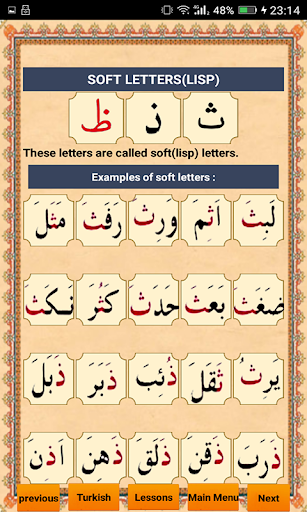 48% 23:14
SOFT LETTERS(LISP)
ث ذ ظ
These letters are called soft(lisp) letters.
Examples of soft letters :
لَبِثَ اَثِمَ وَرِثَ رَفَثَ مَثَلَ
ضَغَثَ بَعَثَ حَدَثَ كَثُرَ نَكَثَ
يَرِثُ ثَقُلَ ذُئِبَ ذَبَرَ ذَبَلَ
ذَرَبَ ذَقِنَ ذَلَقَ ذَهِنَ اَذِنَ
previous Turkish Lessons Main Menu Next